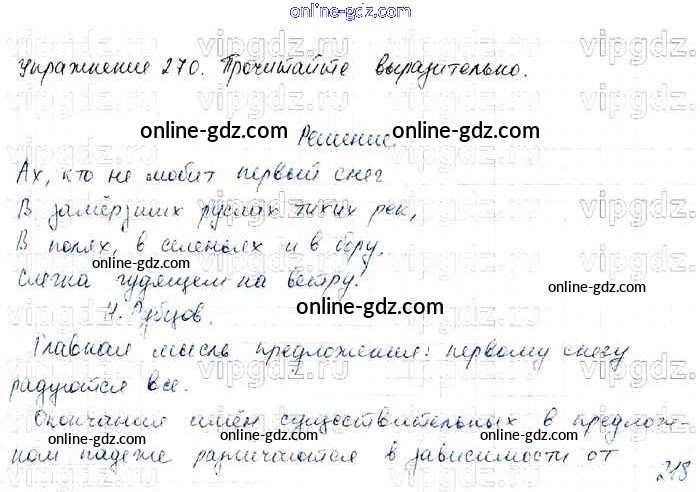 online-gdz.com
Упражнение 270. Прочитайте выразительно.
online-gdz.com
Решение.
online-gdz.com
Ах, кто не любит первый снег
В замёрзших руслах тихих рек,
В полях, в селеньях и в бору,
online-gdz.com
online-gdz.com
Слегка гудящем на ветру!
online-gdz.com
Н. Рубцов.
Главная мысль предложения: первому снегу
радуются все.
online-gdz.com
Окончания имён существительных в предлож-
online-gdz.com
online-gdz.com
ном падеже различаются в зависимости от
218
online-gdz.com